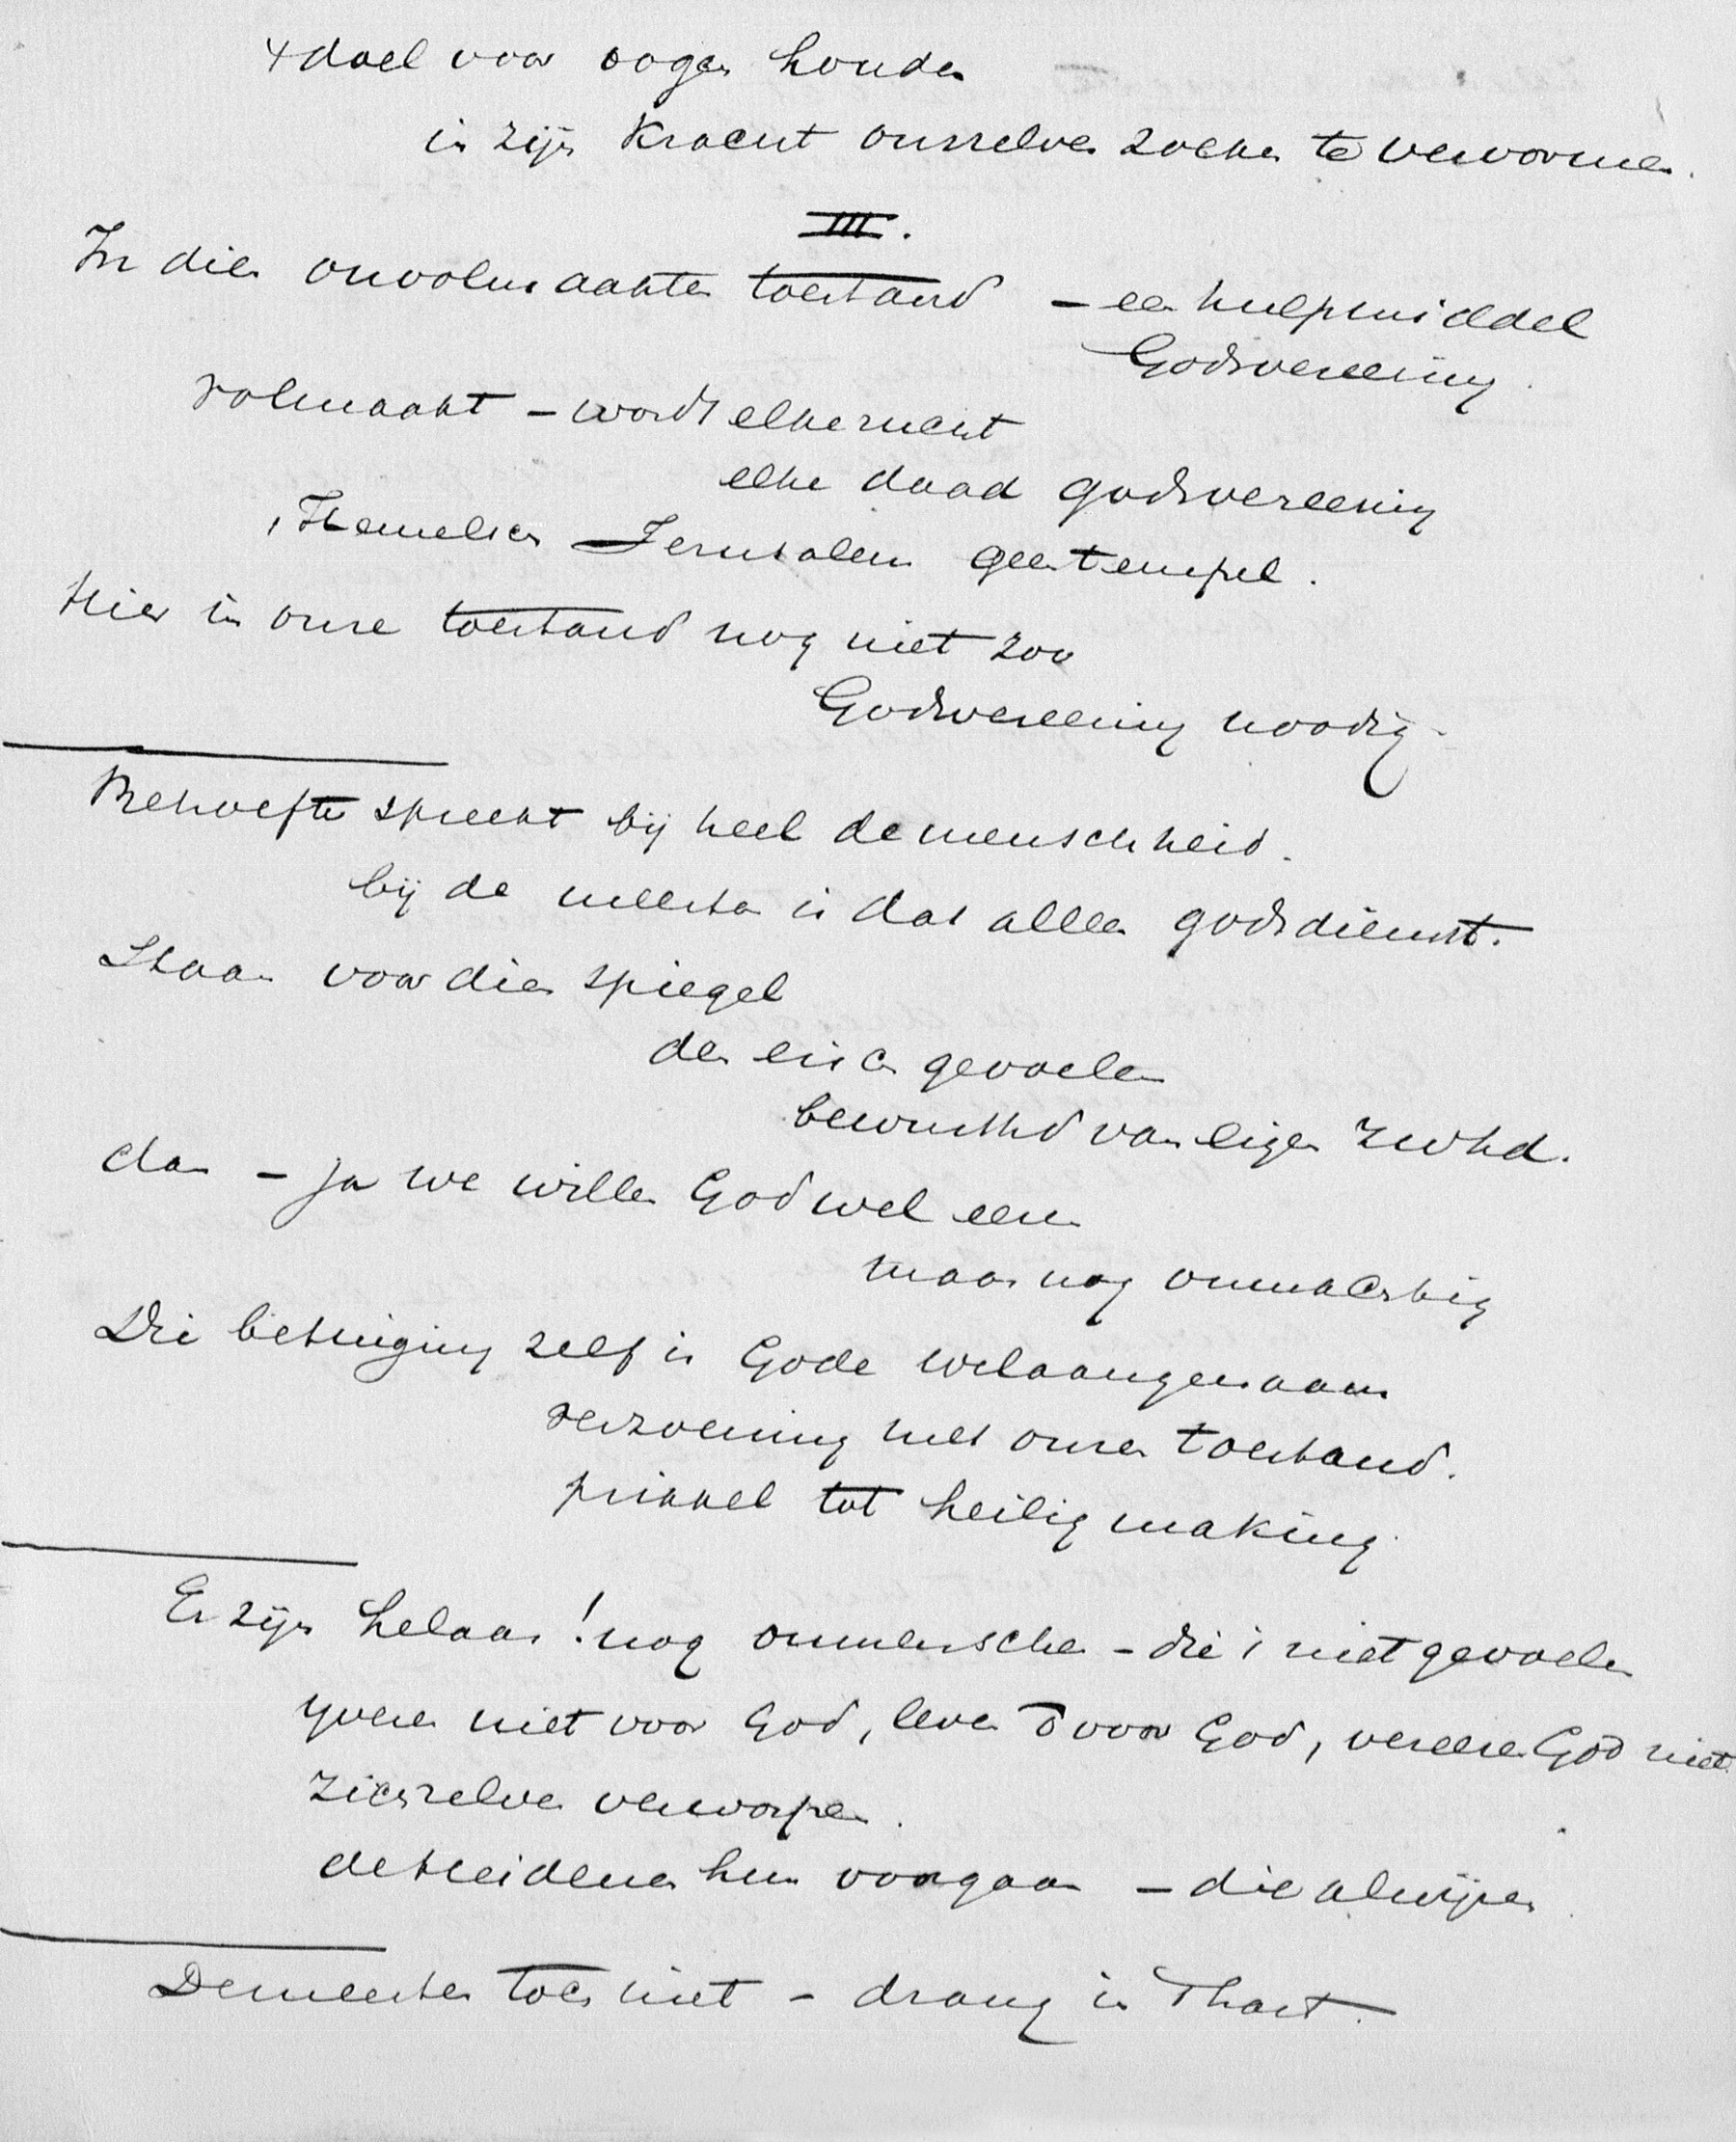 't doel voor oogen houden
in zijn kracht onszelven zoeken te vervormen.
III.
In dien onvolmaakten toestand – een hulpmiddel
Godsvereering.
volmaakt – wordt elke
elke daad godsvereering
't Hemelsch Jerusalem geen tempel.
Hier in onze toestand nog niet zoo
Godsvereering noodig.
Behoefte spreekt bij heel de menschheid.
bij de meesten is dat alleen godsdienst.
Staan voor dien spiegel
den eisch gevoelen
bewusthd van eigen zwhd.
dan – ja we willen God wel eeren
maar nog onmachtig
Die betuiging zelf is Gode welaangenaam
verzoening met onzen toestand.
prikkel tot heiligmaking.
Er zijn helaas! nog onmenschen – die 't niet gevoelen
yveren niet voor God, leven voor God, vereeren God niet
zichzelven verworpen.
de heidenen hun voorgaan – die afwijzen.
De meesten toch niet – drang in 't hart.